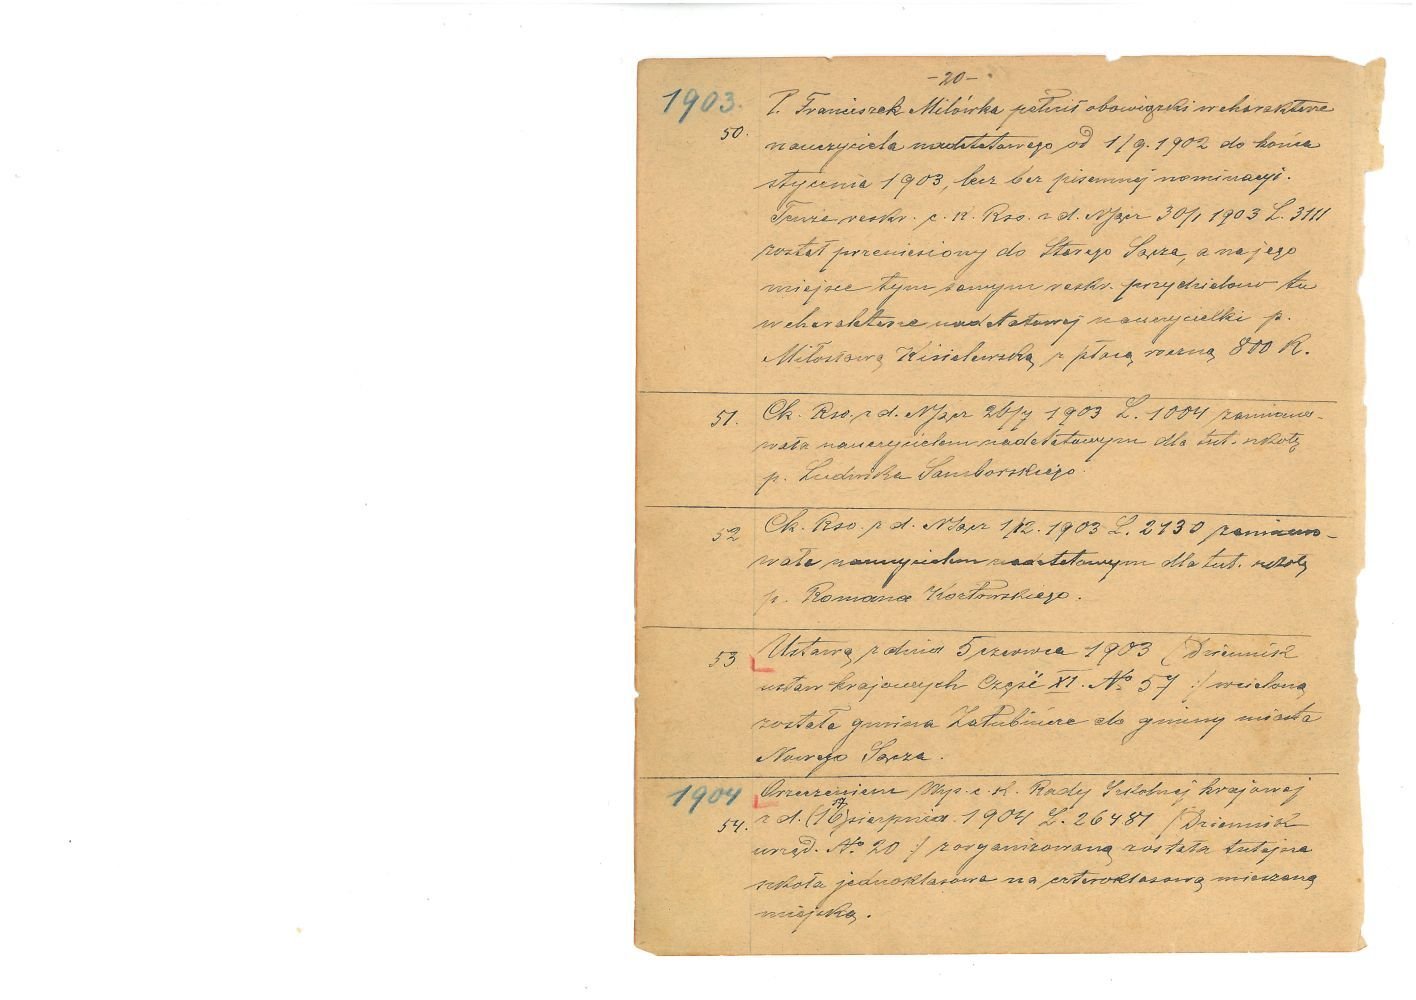 -20-
1903.
50.
P. Franciszek Milówka pełnił obowiązki w charakterze
nauczyciela nadetatowego od 1/9. 1902 do końca
stycznia 1903, lecz bez pisemnej nominacyi.
Tenże reskr. c. K. Rso. z d. N/Sącz 30/1 1903 L. 3111
został przeniesiony do Starego Sącza, a na jego
miejsce tym samym reskr. przydzielono tu
w charakterze nadetatowej nauczycielki p.
Miłosławę Kisielewską z płacą roczną 800 K.
51.
Ck. Rso. z d. N/Sącz 26/7 1903 L. 1004 zamiano-
wała nauczycielem nadetatowym dla tut. szkoły
p. Ludwika Samborskiego
52
Ck. Rso. z d. N/Sącz 1/12. 1903 L. 2130 zamiano-
wała nauczycielem nadetatowym dla tut. szkoły
p. Romana Kozłowskiego.
53
Ustawą z dnia 5 czerwca 1903 (Dziennik
ustaw krajowych Część XI. No 57 :/ wcieloną
została gmina Załubińcze do gminy miasta
Nowego Sącza.
1904
54.
Orzeczeniem Wys. c. k. Rady Szkolnej krajowej
z d. (16) sierpnia 1904 L. 26481 (Dziennik
urzęd. No 20 :/ zorganizowaną została tutejsza
szkoła jednoklasowa na czteroklasową mieszaną
miejską.